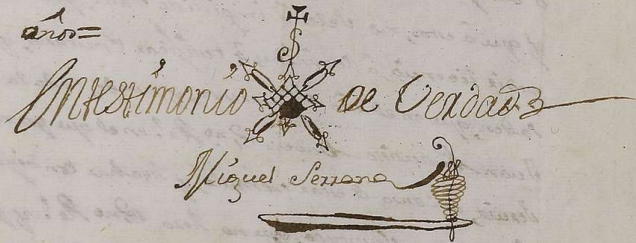 años=
En testimonio de Verdad
Miguel Serrano